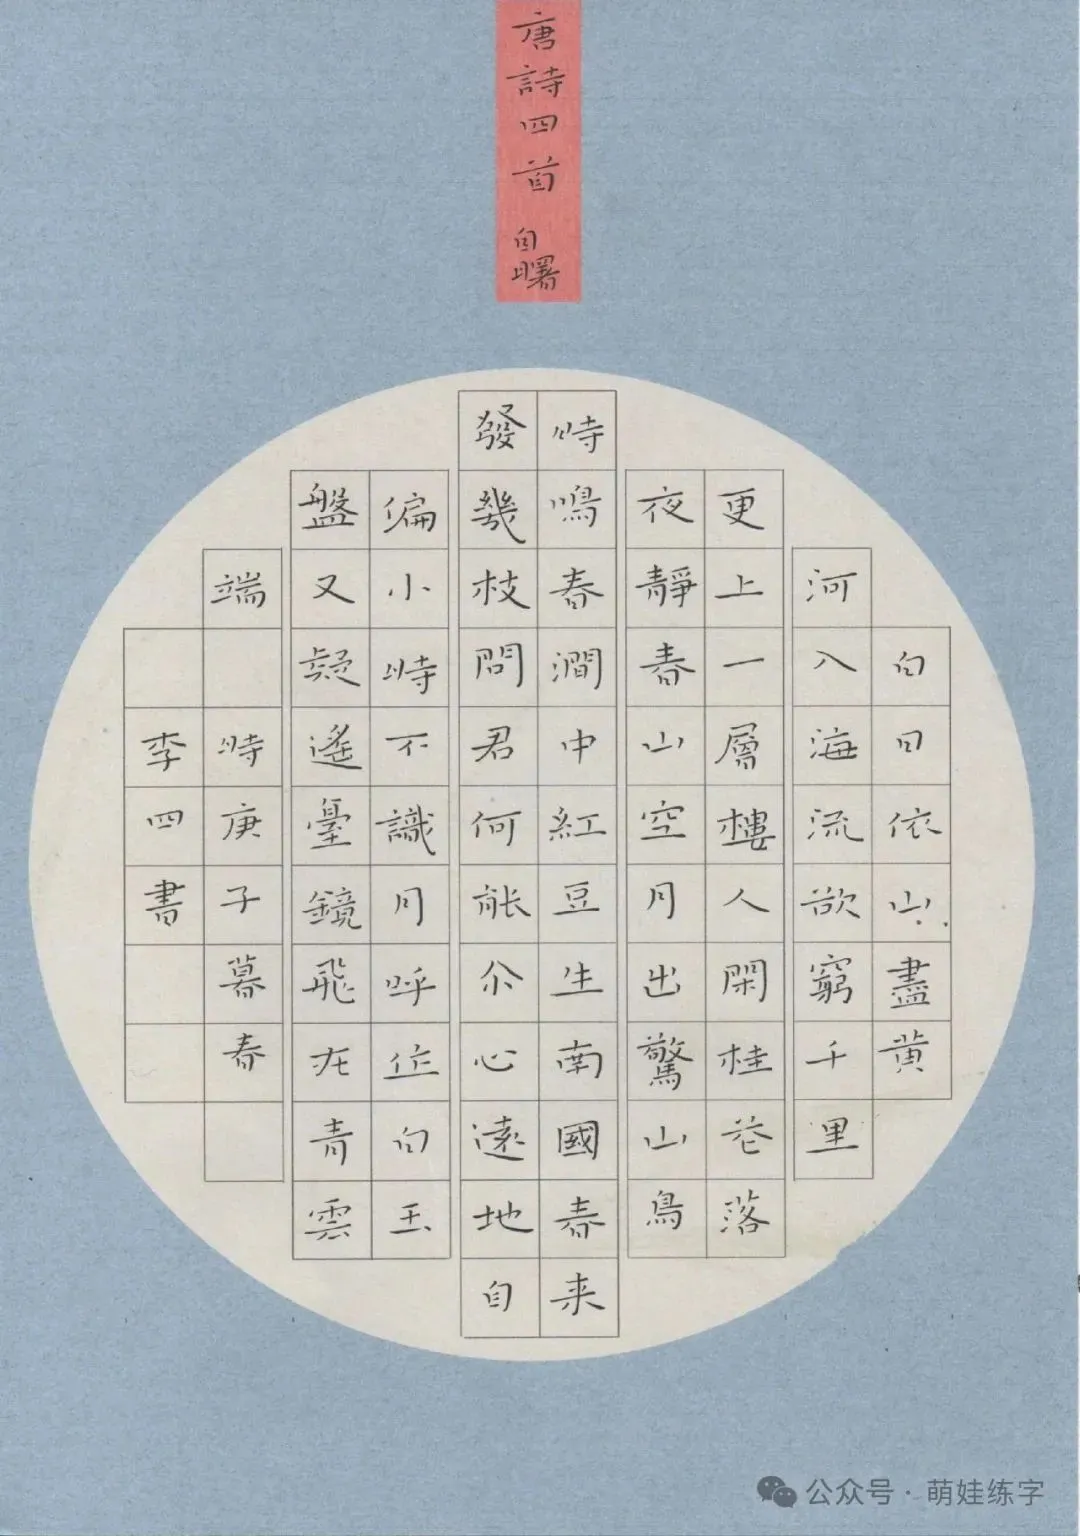 唐詩四首 自曙
白日依山盡黄
河入海流欲窮千里
更上一層樓人閑桂花落
夜靜春山空月出驚山鳥
時鳴春澗中紅豆生南國春来
發幾枝問君何能尔心遠地自
偏小時不識月呼作白玉
盤又疑遥臺鏡飛在青雲
端 時庚子暮春
李四書
公众号·萌娃练字